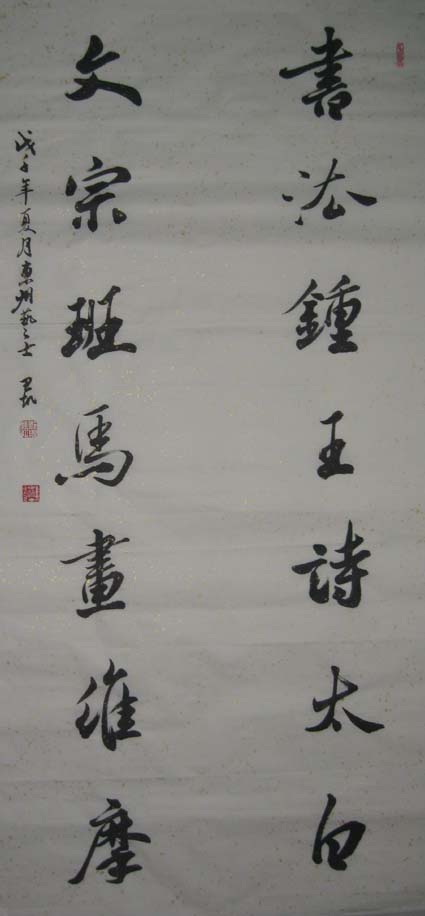 書法鍾王詩太白
文宗班馬畫維摩
戊子年夏月惠州藝士